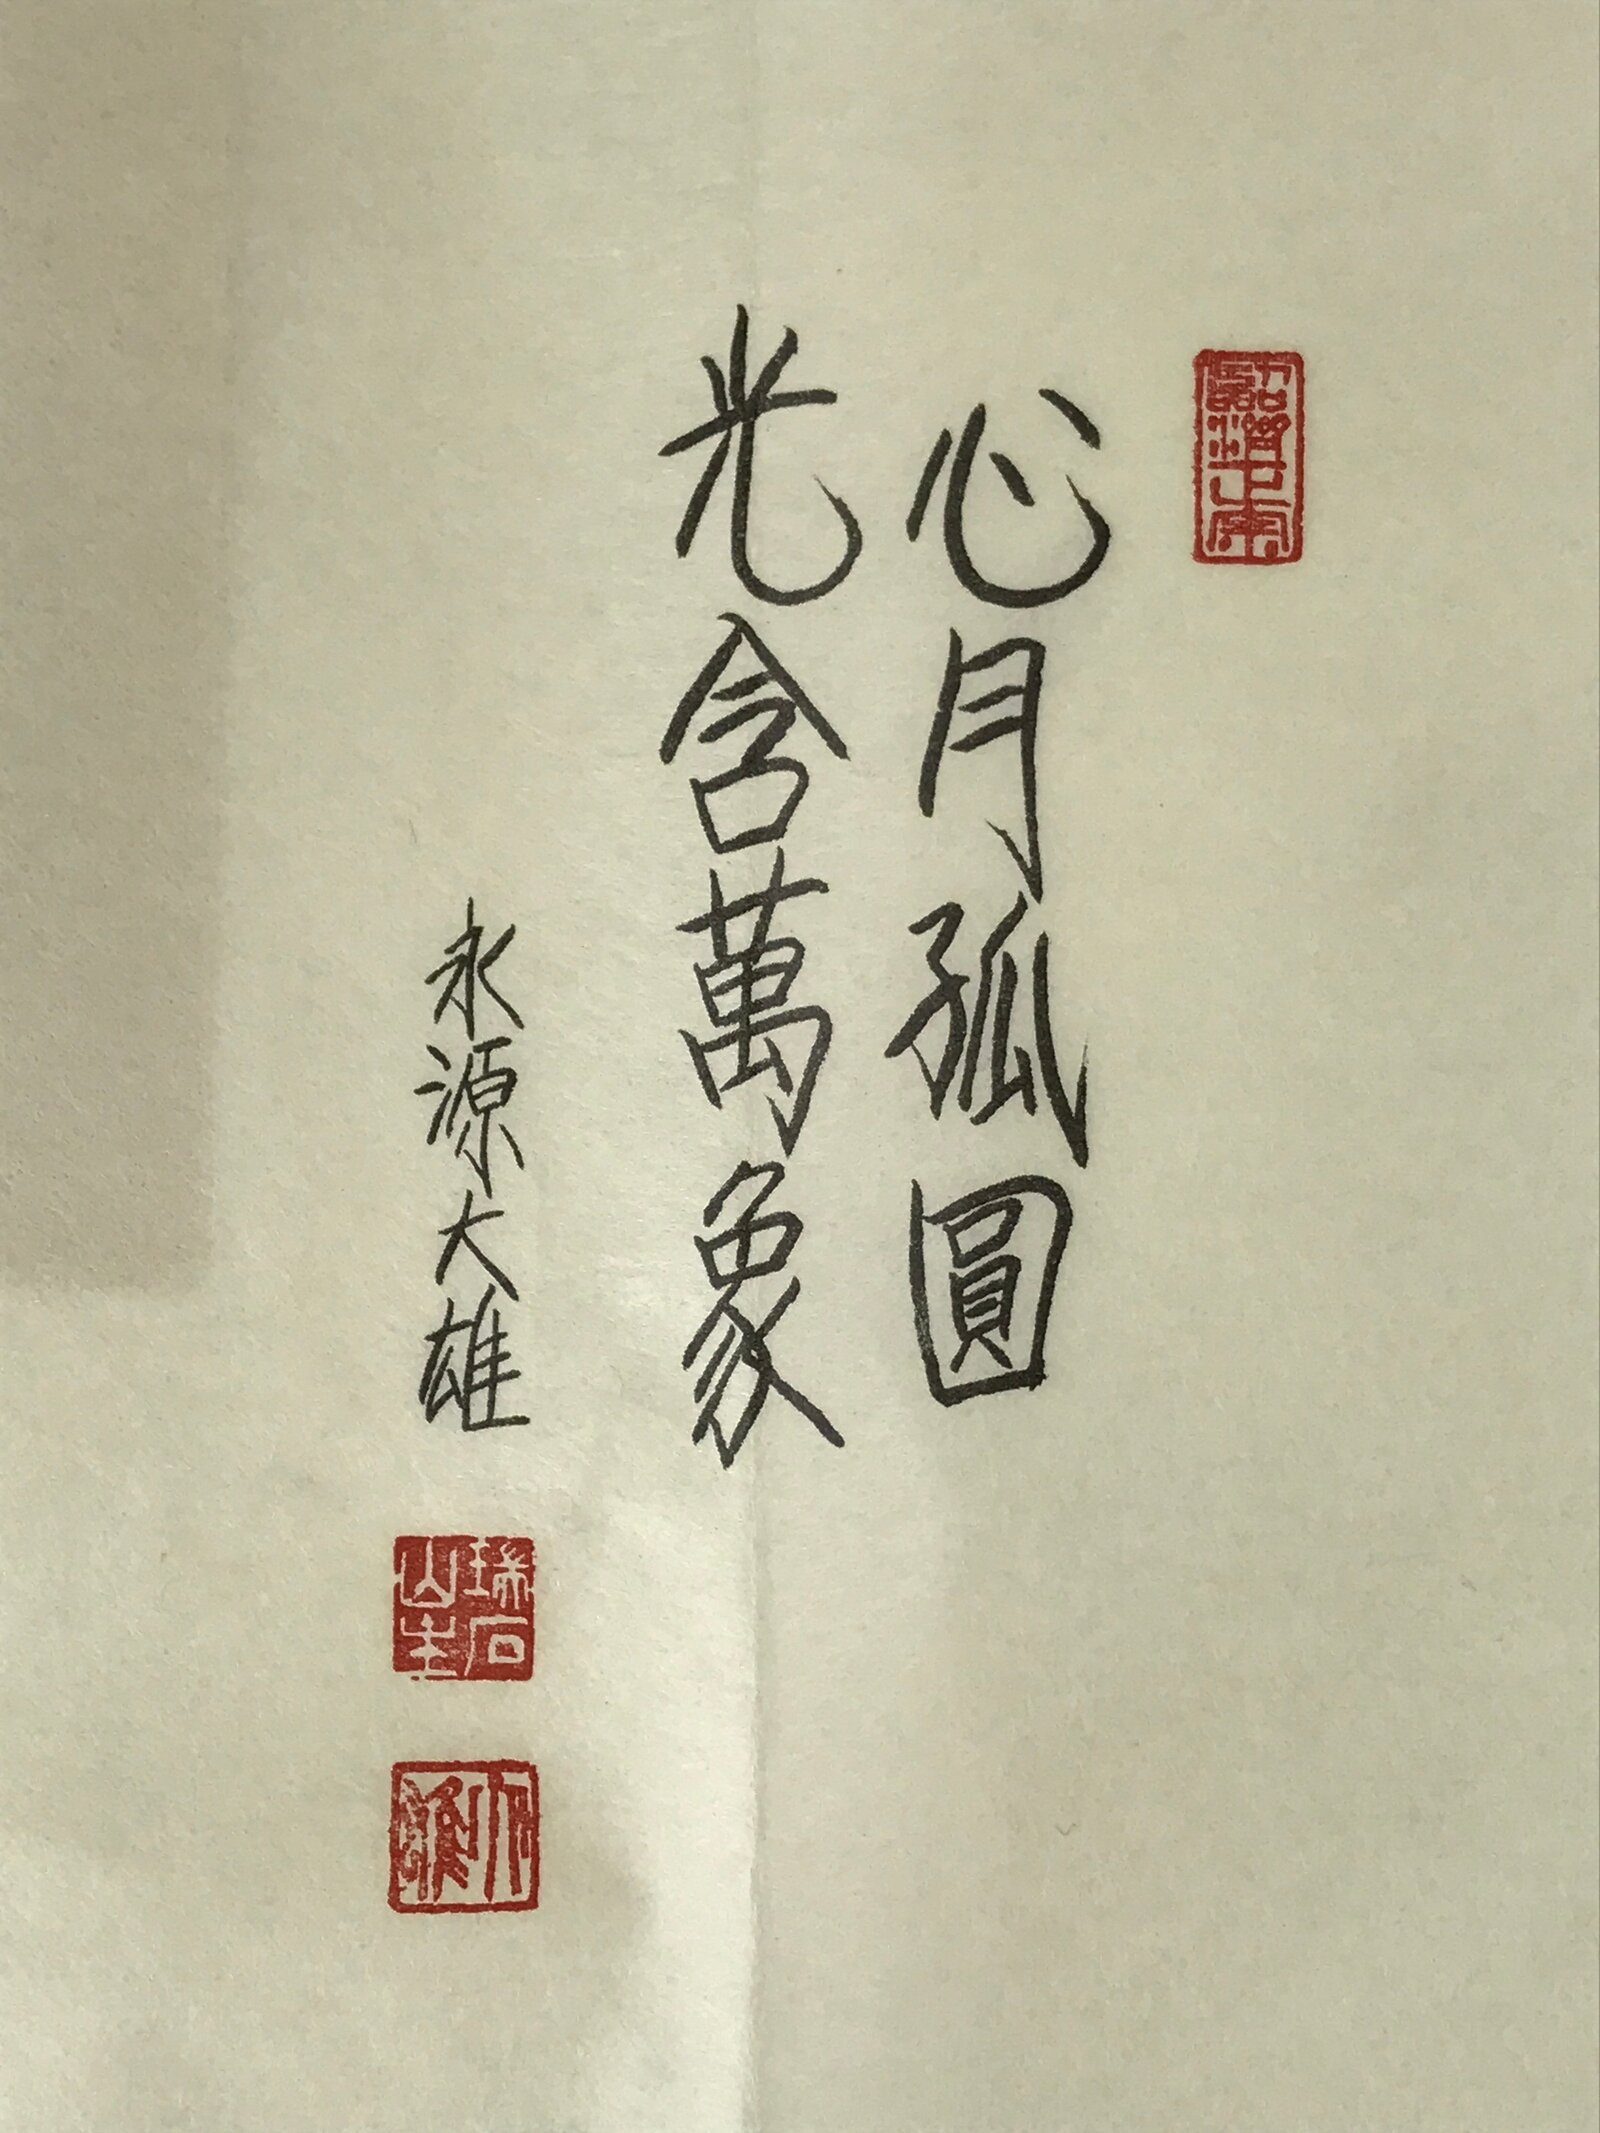 心月孤圓
光含萬象
永源大雄
瑞石山主